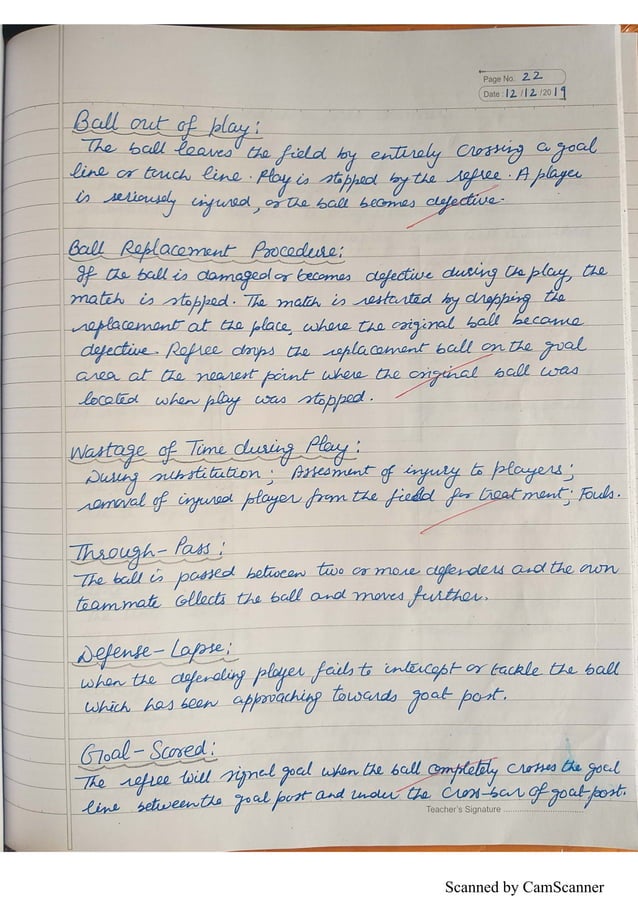 Page No. 22
Date: 12/12/2019
Ball out of play:
The ball leaves the field by entirely crossing a goal
line or touch line. Play is stopped by the refree. A player
is seriously injured, or the ball becomes defective.
Ball Replacement Procedure:
If the ball is damaged or becomes defective during the play, the
match is stopped. The match is restarted by dropping the
replacement at the place, where the original ball became
defective. Refree drops the replacement ball on the goal
area at the nearest point where the original ball was
located when play was stopped.
Wastage of Time during Play:
During substitution; Assesment of injury to players;
removal of injured player from the field for treatment; Fouls.
Through-Pass:
The ball is passed between two or more defenders and the own
teammate collects the ball and moves further.
Defense-Lapse:
When the defending player fails to intercept or tackle the ball
which has been approaching towards goal post.
Goal-Scored:
The refree will signal goal when the ball completely crosses the goal
line between the goal post and under the cross-bar of goal post.
Teacher's Signature ........................
Scanned by CamScanner